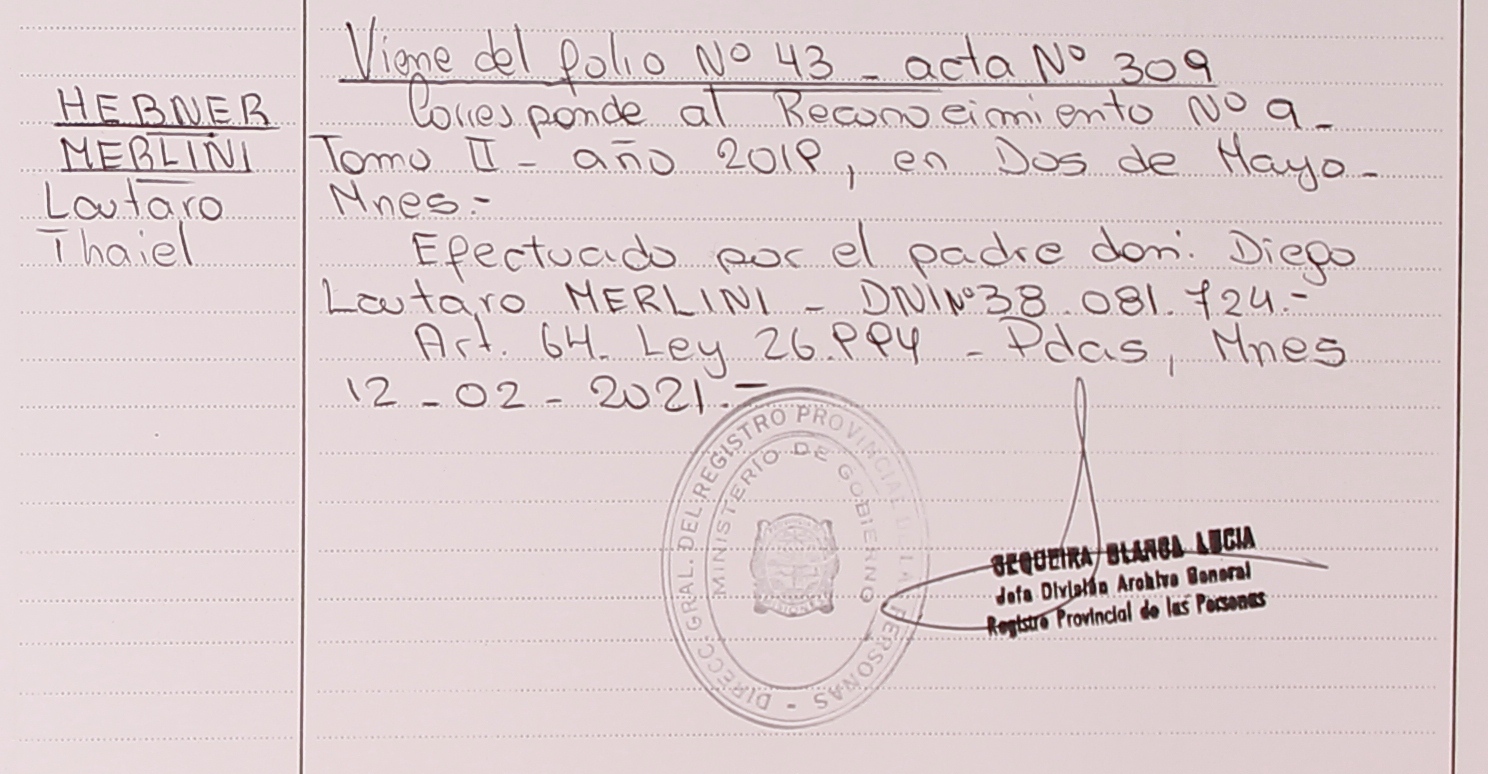 Viene del folio Nº 43 - acta Nº 309
HEBNER
MERLINI
Lautaro
Thaiel
Corresponde al Reconocimiento Nº 9-
Tomo II - año 2019, en Dos de Mayo-
Mnes.-
Efectuado por el padre don: Diego
Lautaro MERLINI - DNI Nº 38.081.724.-
Art. 64. Ley 26.994 - Pdas, Mnes
12 - 02 - 2021.-
DIRECC. GRAL. DEL REGISTRO PROVINCIAL DE LAS PERSONAS -
MINISTERIO DE GOBIERNO
SEQUEIRA BLANCA LUCIA
Jefa División Archivo General
Registro Provincial de las Personas